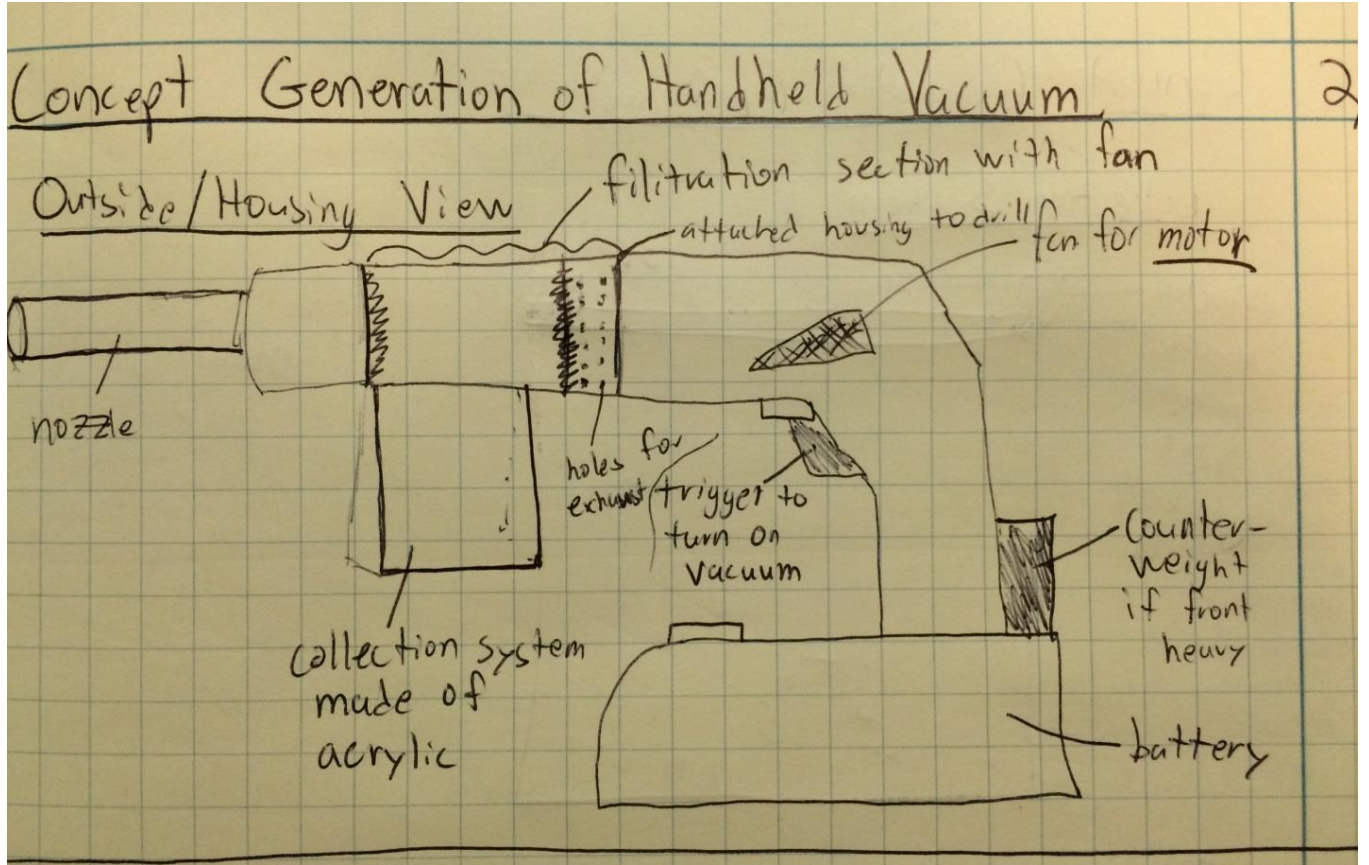 Concept Generation of Handheld Vacuum
2
Outside/Housing View
filitration section with fan
attached housing to drill
fan for motor
nozzle
holes for
exhaust
trigger to
turn on
vacuum
counter-
weight
if front
heavy
collection system
made of
acrylic
battery